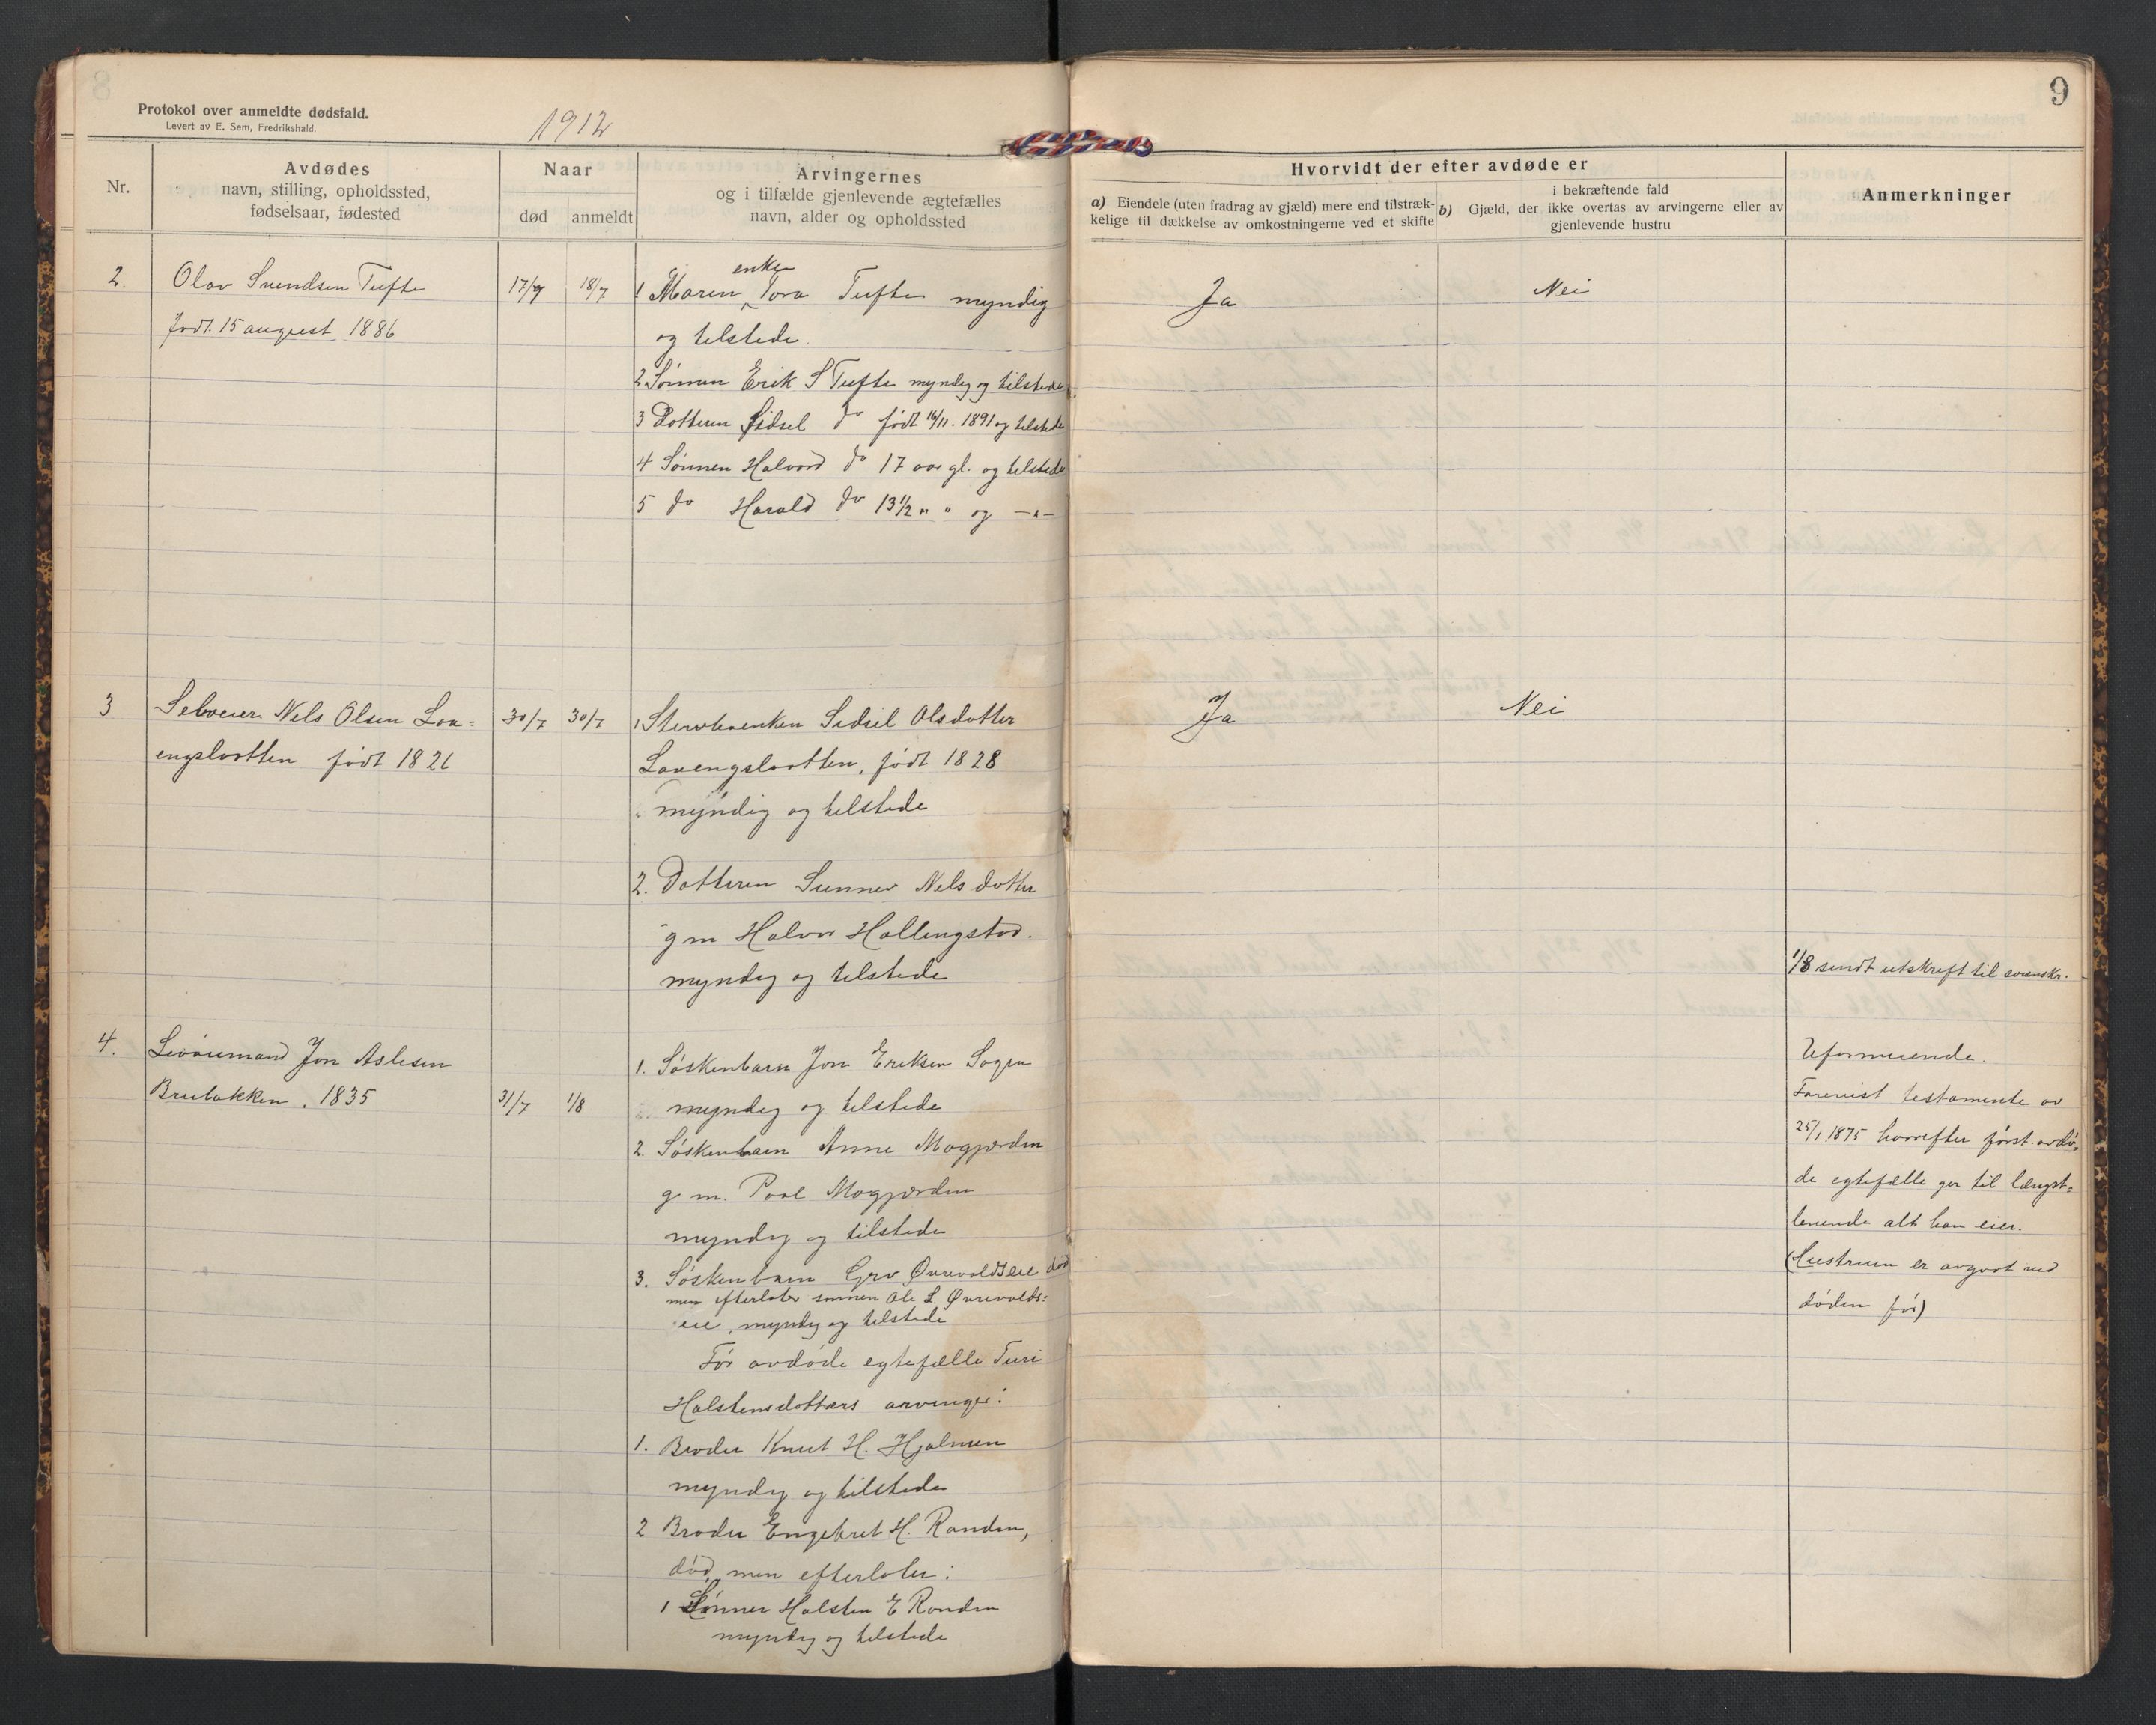 Protokol over anmeldte dødsfald.
Levert av E. Sem, Fredrikshald.
1912
9
Nr.
Avdødes
navn, stilling, opholdssted,
fødselsaar, fødested
Naar
død
anmeldt
Arvingernes
og i tilfælde gjenlevende ægtefælles
navn, alder og opholdssted
Hvorvidt der efter avdøde er
a) Eiendele (uten fradrag av gjæld) mere end tilstræk-
kelige til dækkelse av omkostningerne ved et skifte
i bekræftende fald
b) Gjæld, der ikke overtas av arvingerne eller av
gjenlevende hustru
Anmerkninger
2.
Olav Svendsen Tufte
født 15 august 1886
17/7
18/7
enke
1 Maren Tora Tufte myndig
og tilstede.
2 Sønnen Erik S Tufte myndig og tilstede
3 Dotteren Sidsel do født 16/11. 1891 og tilstede
4 Sønnen Halvord do 17 aar gl. og tilstede
5 do Harald do 13½ " " og —"—
Ja
Nei
3
Selveier Nels Olsen Laa=
engslaatten født 1821
30/7
30/7
1. Stervboenken Sidsel Olsdotter
Laaengslaatten, født 1828
myndig og tilstede
2. Dotteren Sunnev Nelsdotter
g m Halvor Hallingstad.
myndig og tilstede
Ja
Nei
1/8 sendt utskrift til sorenskr.
4.
Jon Aslesen
Brubakken. 1835
31/7
1/8
1. Søskenbarn Jon Eriksen Sogn
myndig og tilstede
2. Søskenbarn Anne Mogjorden
g m. Paal Mogjorden
myndig og tilstede
3. Søskenbarn Gro Øvrevoldseie død
men efterlater sønnen Ole L Øvrevolds=
eie, myndig og tilstede
Før avdøde egtefælle Turi
Halstensdotters arvinger:
1. Broder Knut H. Hjalmen
myndig og tilstede
2 Broder Engebret H. Randen,
død, men efterlater:
1 Sønner Halsten E Randen
myndig og tilstede
Uformuende.
Forevist testamente av
25/1 1875 hvorefter først avdø=
de egtefælle gir til længst=
levende alt han eier.
(Hustruen er avgaat ved
døden før)